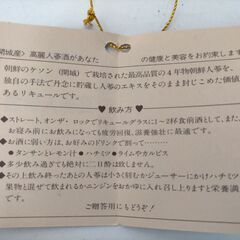 開城産〉高麗人蔘酒があなた の健康と美容をお約束します
朝鮮のケソン（開城）で栽培された最高品質の4年物朝鮮人蔘を、
独自の手法で丹念に貯蔵し人蔘のエキスをそのまま封じこめた価値
あるリキュールです。
♥ 飲み方 ♥
●ストレート、オンザ・ロックでリキュールグラスに1〜2杯食前酒として、また
お寝み前にお飲みになっても疲労回復、滋養強壮に最適です。
●お酒に弱い方は、お好みのドリンクで割って…………
●タンサンとレモン汁 ●ハチミツ ●ライムやカルピス
●多少飲み過ぎても絶対に二日酔は致しません。
●その上飲み終ったあとの人蔘は小さく刻むかジューサーにかけハチミツ
果物と混ぜて飲まれるかニンジンをおかゆに入れ召し上りますと栄養満
です。
ご贈答用にもどうぞ！